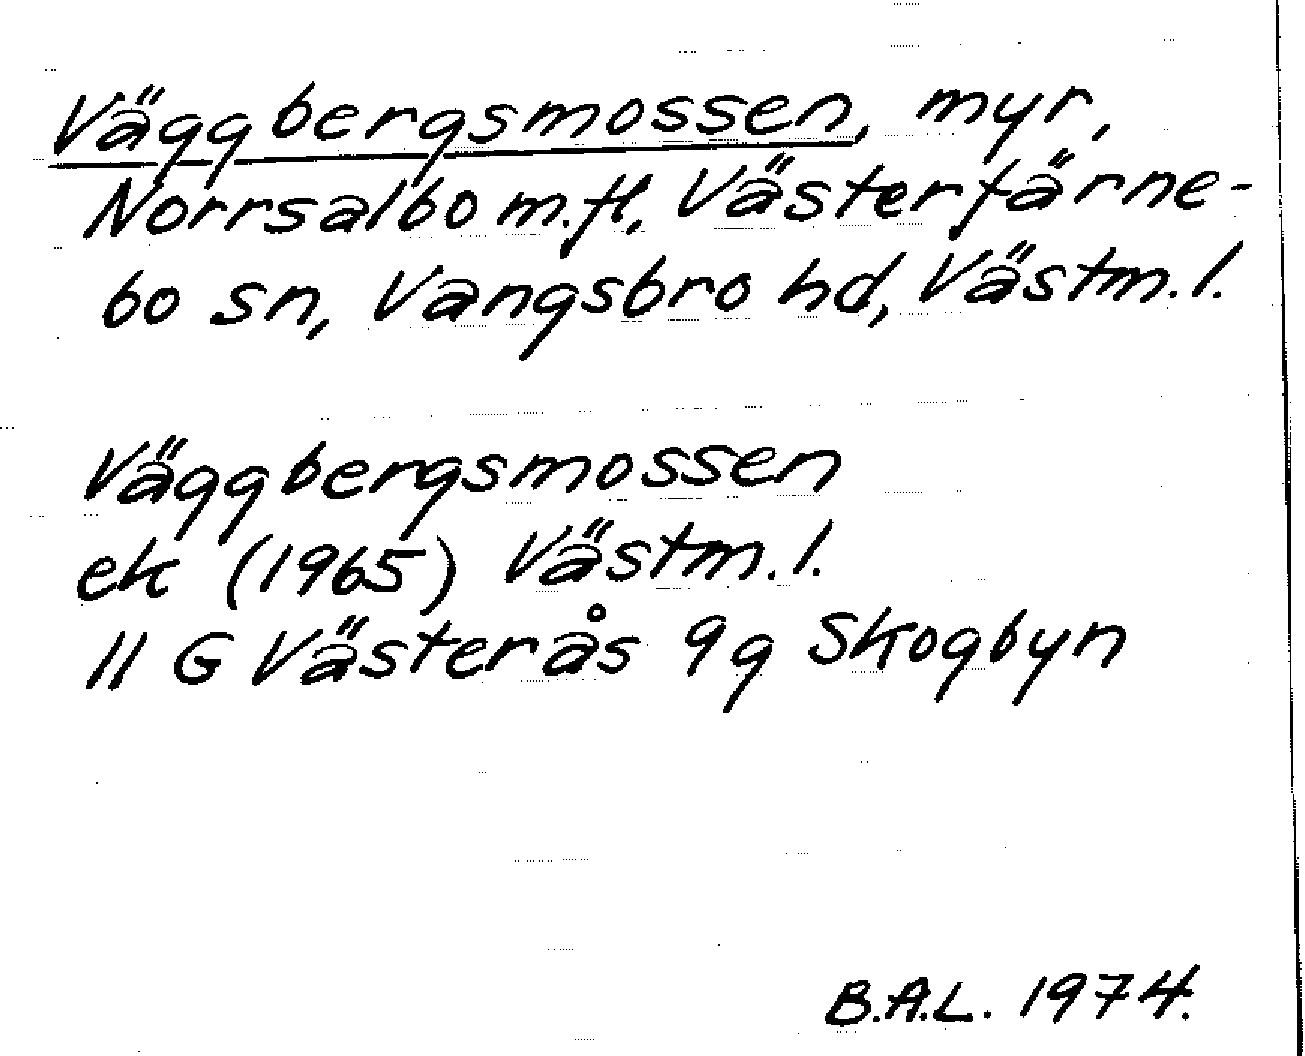 Väggbergsmossen, myr,
Norrsalbo m.fl., Västerfärne-
bo sn, Vangsbro hd, Västm.l.
Väggbergsmossen
ek (1965) Västm.l.
11 G Västerås 9g Skogbyn
B.A.L. 1974.